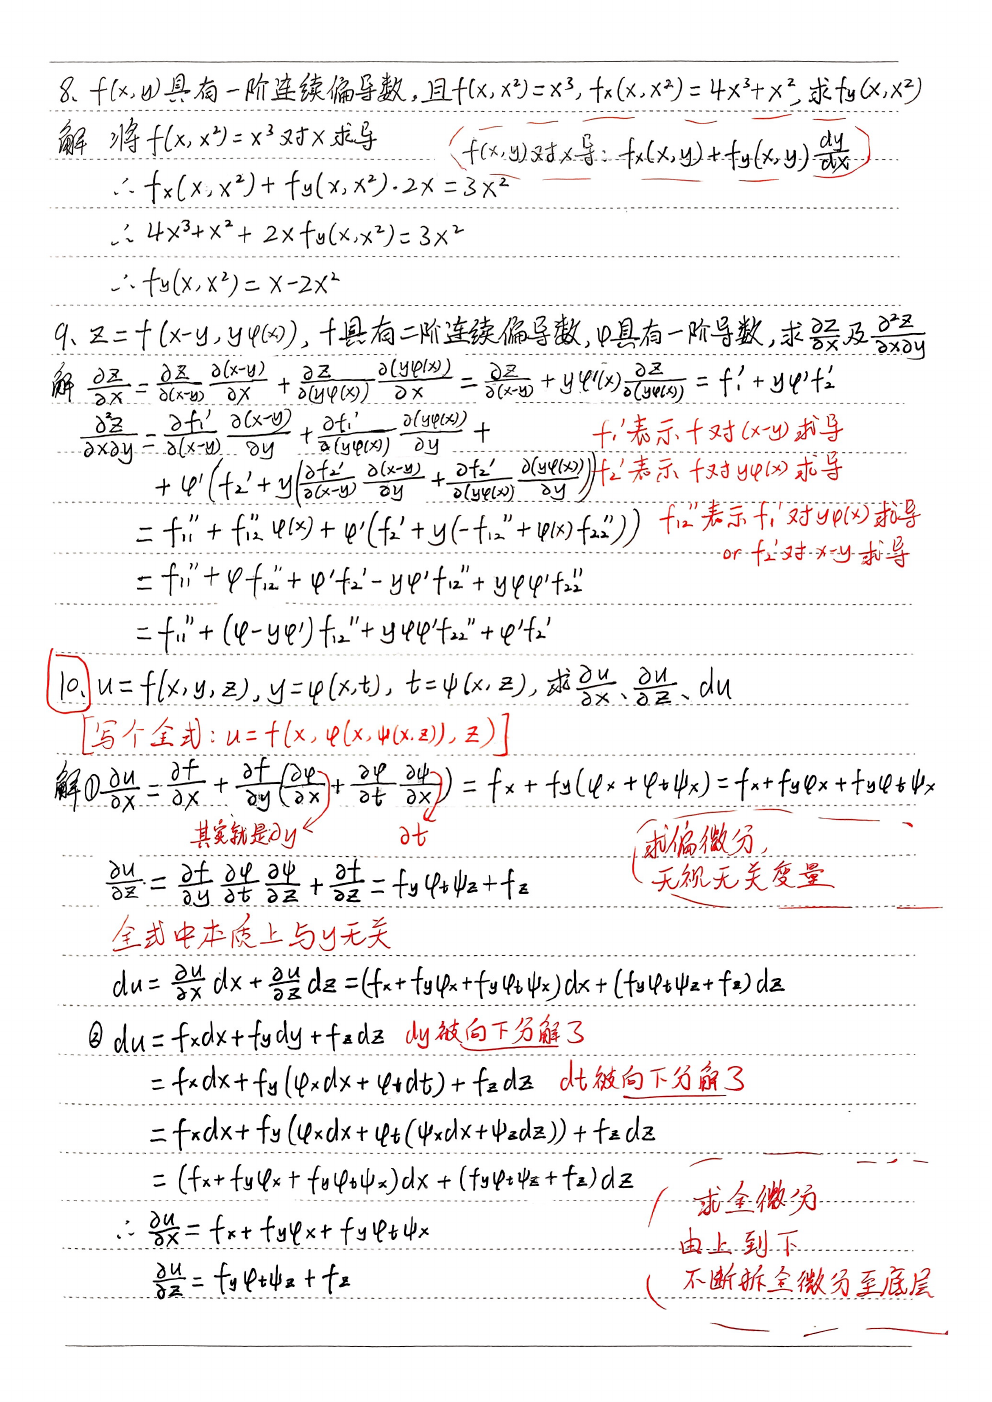 8、f(x,y)具有一阶连续偏导数,且f(x,x²)=x³,fx(x,x²)=4x³+x²,求fy(x,x²)
解 将f(x,x²)=x³对x求导
(f(x,y)对x导:fx(x,y)+fy(x,y)dy/dx)
∴fx(x,x²)+fy(x,x²)·2x=3x²
∴4x³+x²+2xfy(x,x²)=3x²
∴fy(x,x²)=x-2x²
9、z=f(x-y,yφ(x)),f具有二阶连续偏导数,φ具有一阶导数,求∂z/∂x及∂²z/∂x∂y
解 ∂z/∂x=∂z/∂(x-y) ∂(x-y)/∂x+∂z/∂(yφ(x)) ∂(yφ(x))/∂x=∂z/∂(x-y)+yφ'(x)∂z/∂(yφ(x))=f₁'+yφ'f₂'
∂²z/∂x∂y=∂f₁'/∂(x-y) ∂(x-y)/∂y+∂f₁'/∂(yφ(x)) ∂(yφ(x))/∂y+
f₁'表示f对(x-y)求导
+φ'(f₂'+y(∂f₂'/∂(x-y) ∂(x-y)/∂y+∂f₂'/∂(yφ(x)) ∂(yφ(x))/∂y))
f₂'表示f对yφ(x)求导
=f₁₁''+f₁₂''φ(x)+φ'(f₂'+y(-f₁₂''+φ(x)f₂₂''))
f₁₂''表示f₁'对yφ(x)求导
or f₂'对x-y求导
=f₁₁''+φf₁₂''+φ'f₂'-yφ'f₁₂''+yφφ'f₂₂''
=f₁₁''+(φ-yφ')f₁₂''+yφφ'f₂₂''+φ'f₂'
10、u=f(x,y,z),y=φ(x,t),t=ψ(x,z),求∂u/∂x、∂u/∂z、du
[写个全式:u=f(x,φ(x,ψ(x,z)),z)]
解①∂u/∂x=∂f/∂x+∂f/∂y(∂φ/∂x+∂φ/∂t ∂ψ/∂x)=fx+fy(φx+φtψx)=fx+fyφx+fyφtψx
其实就是∂y ∂t
求偏微分,
无视无关变量
∂u/∂z=∂f/∂y ∂φ/∂t ∂ψ/∂z+∂f/∂z=fyφtψz+fz
全式中本质上与y无关
du=∂u/∂x dx+∂u/∂z dz=(fx+fyφx+fyφtψx)dx+(fyφtψz+fz)dz
② du=fxdx+fydy+fzdz dy被向下分解了
=fxdx+fy(φxdx+φtdt)+fzdz dt被向下分解了
=fxdx+fy(φxdx+φt(ψxdx+ψzdz))+fzdz
=(fx+fyφx+fyφtψx)dx+(fyφtψz+fz)dz
求全微分
∴∂u/∂x=fx+fyφx+fyφtψx
由上到下
∂u/∂z=fyφtψz+fz
不断拆全微分至底层